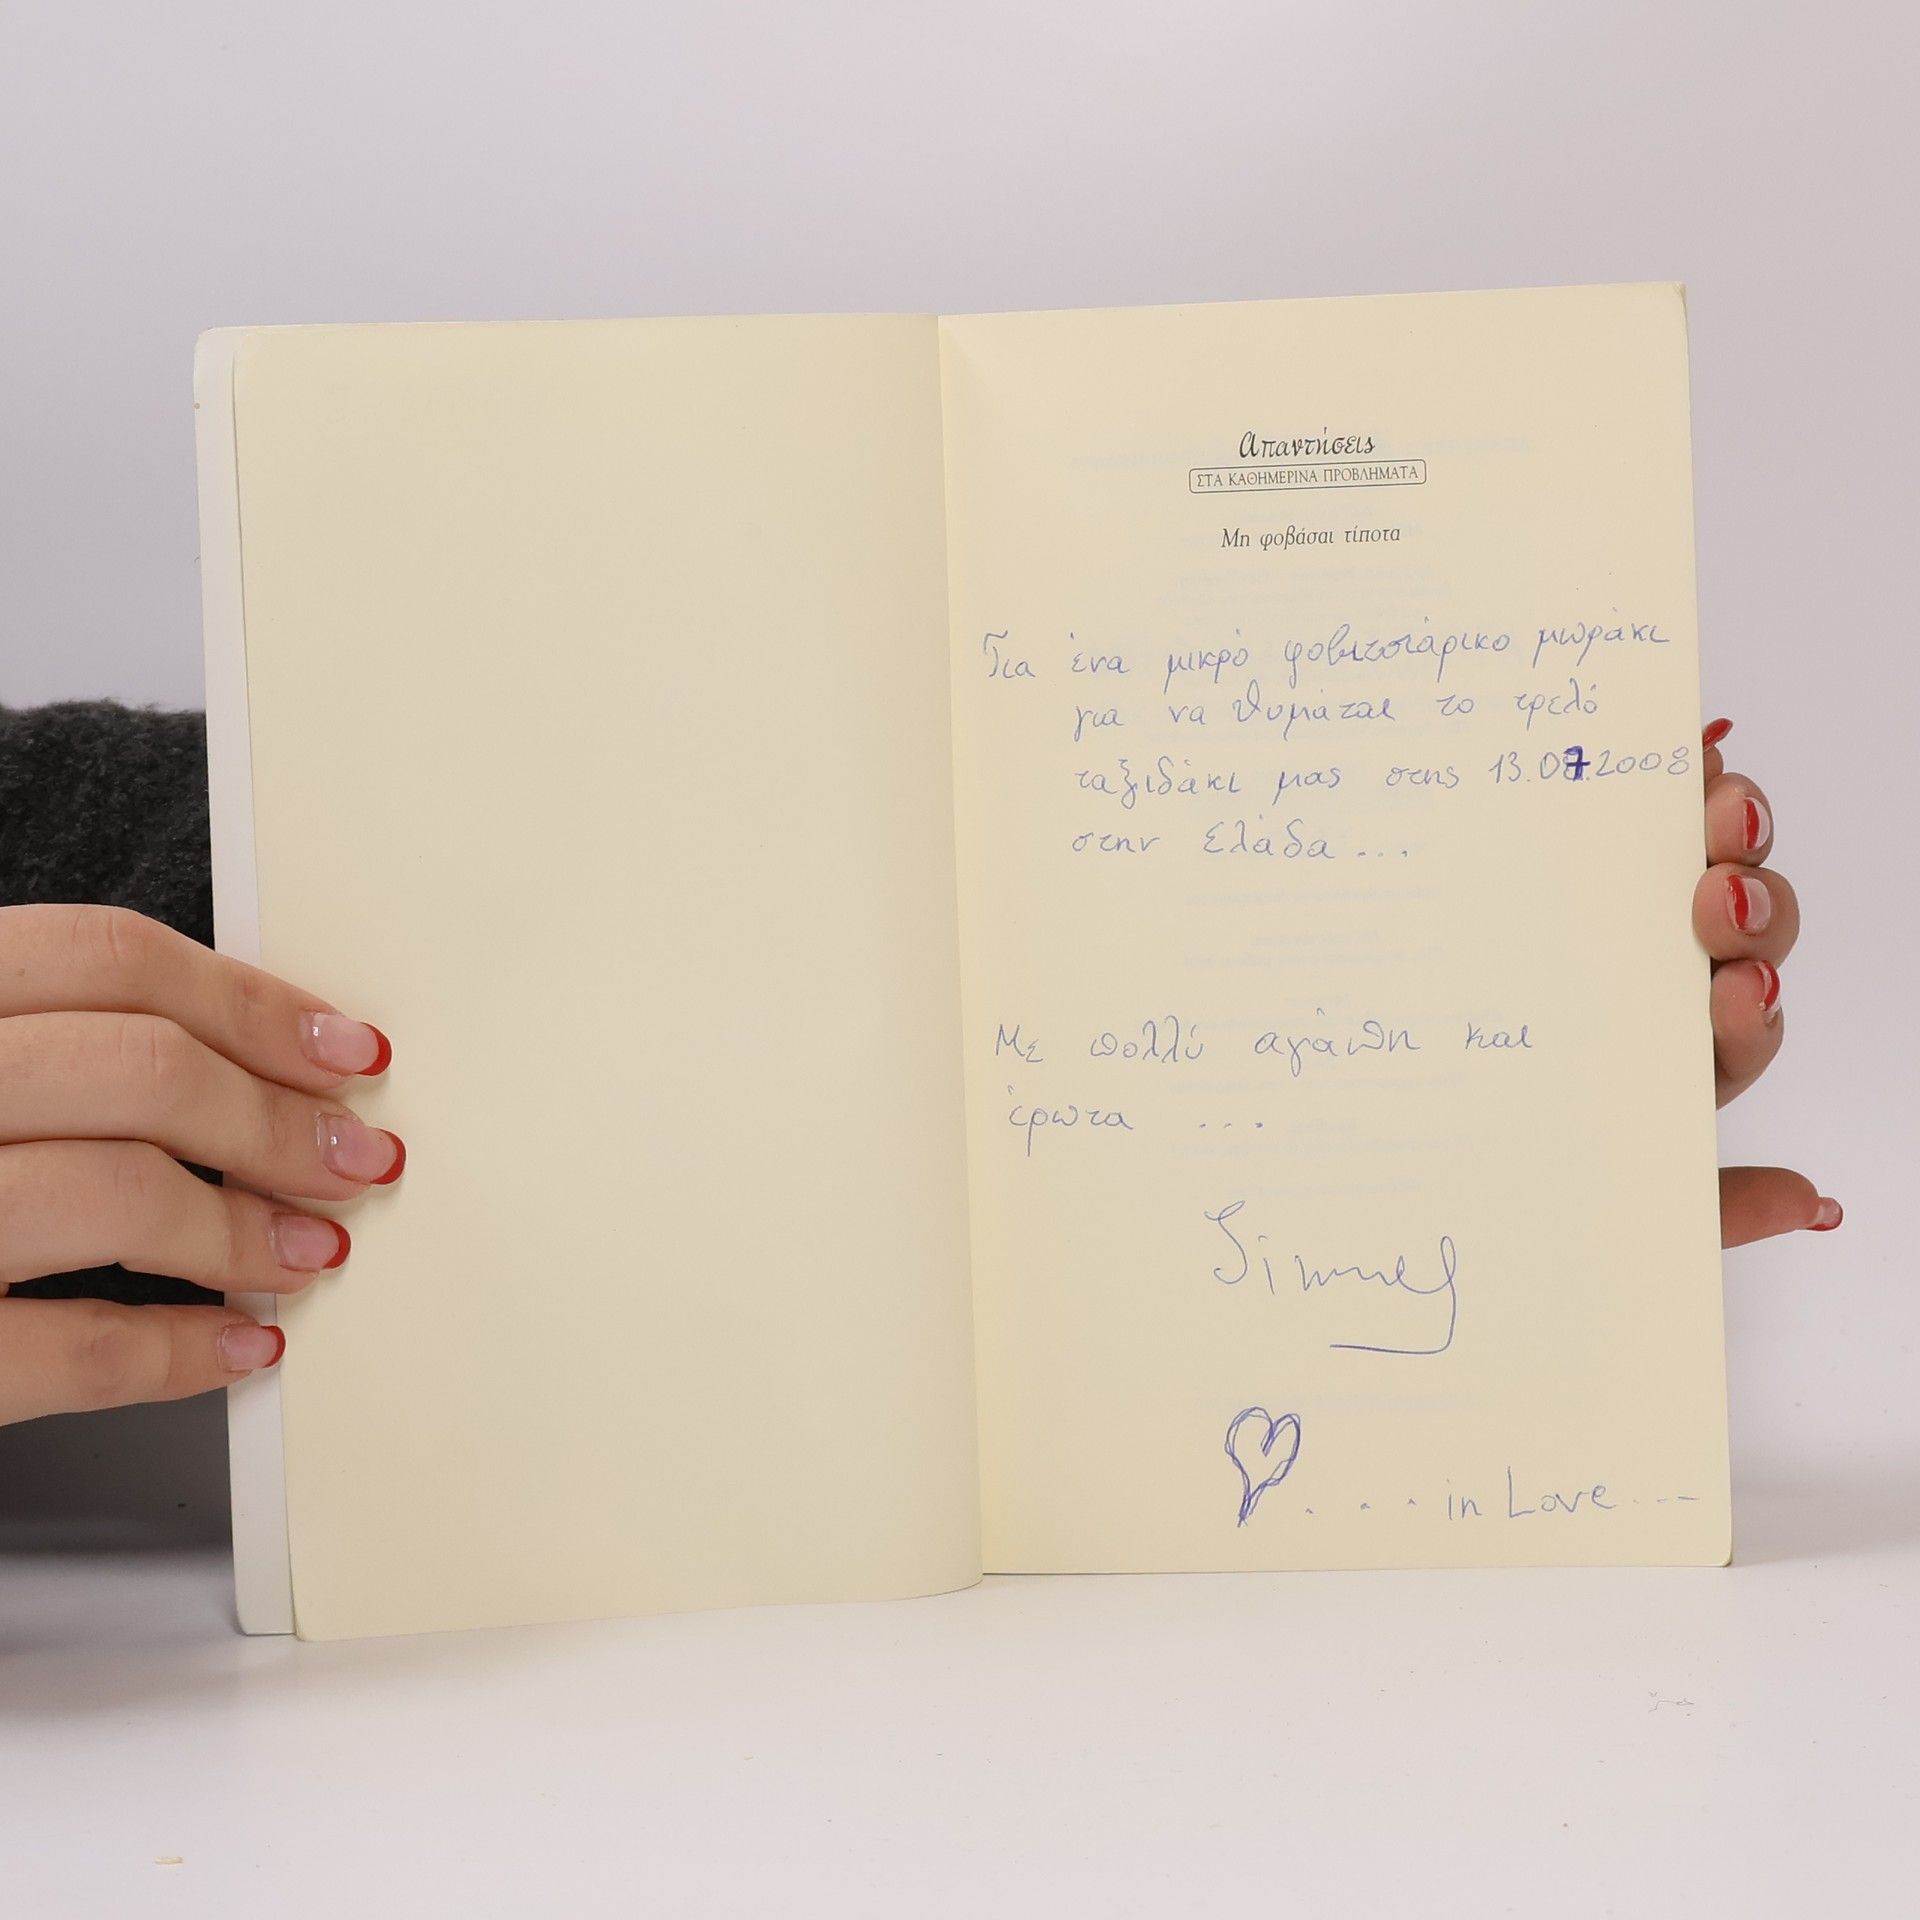 Απαντήσεις
ΣΤΑ ΚΑΘΗΜΕΡΙΝΑ ΠΡΟΒΛΗΜΑΤΑ
Μη φοβάσαι τίποτα
Για ένα μικρό φοβιτσιάρικο μωράκι
για να θυμάται το τρελό
ταξιδάκι μας στης 13.07.2008
στην Ελάδα...
Με πολλύ αγάπη και
έρωτα ...
.... in Love ...